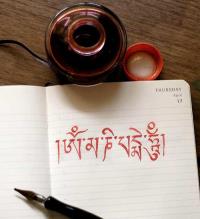 THURSDAY
April
17
།ཨོཾ་མ་ཎི་པདྨེ་ཧཱུྃ།